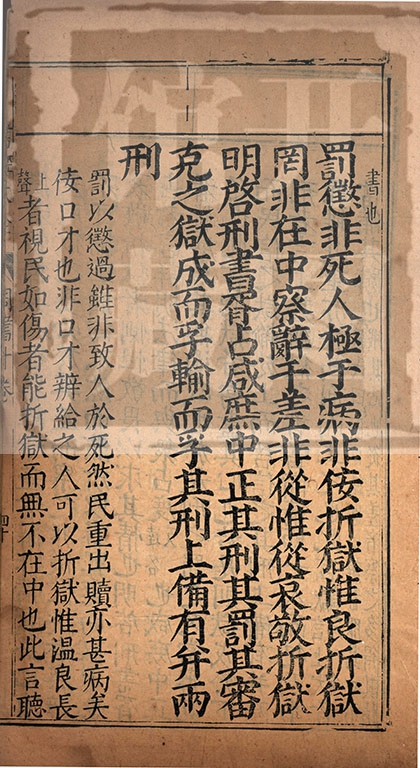 書也
罰懲非死人極于病非佞折獄惟良折獄
罔非在中察辭于差非從惟從哀敬折獄
明啓刑書胥占咸庶中正其刑其罰其審
克之獄成而孚輸而孚其刑上備有并兩
刑
罰以懲過雖非致人於死然民重出贖亦甚病矣
佞口才也非口才辯給之人可以折獄惟溫良長
上聲者視民如傷者能折獄而無不在中也此言聽